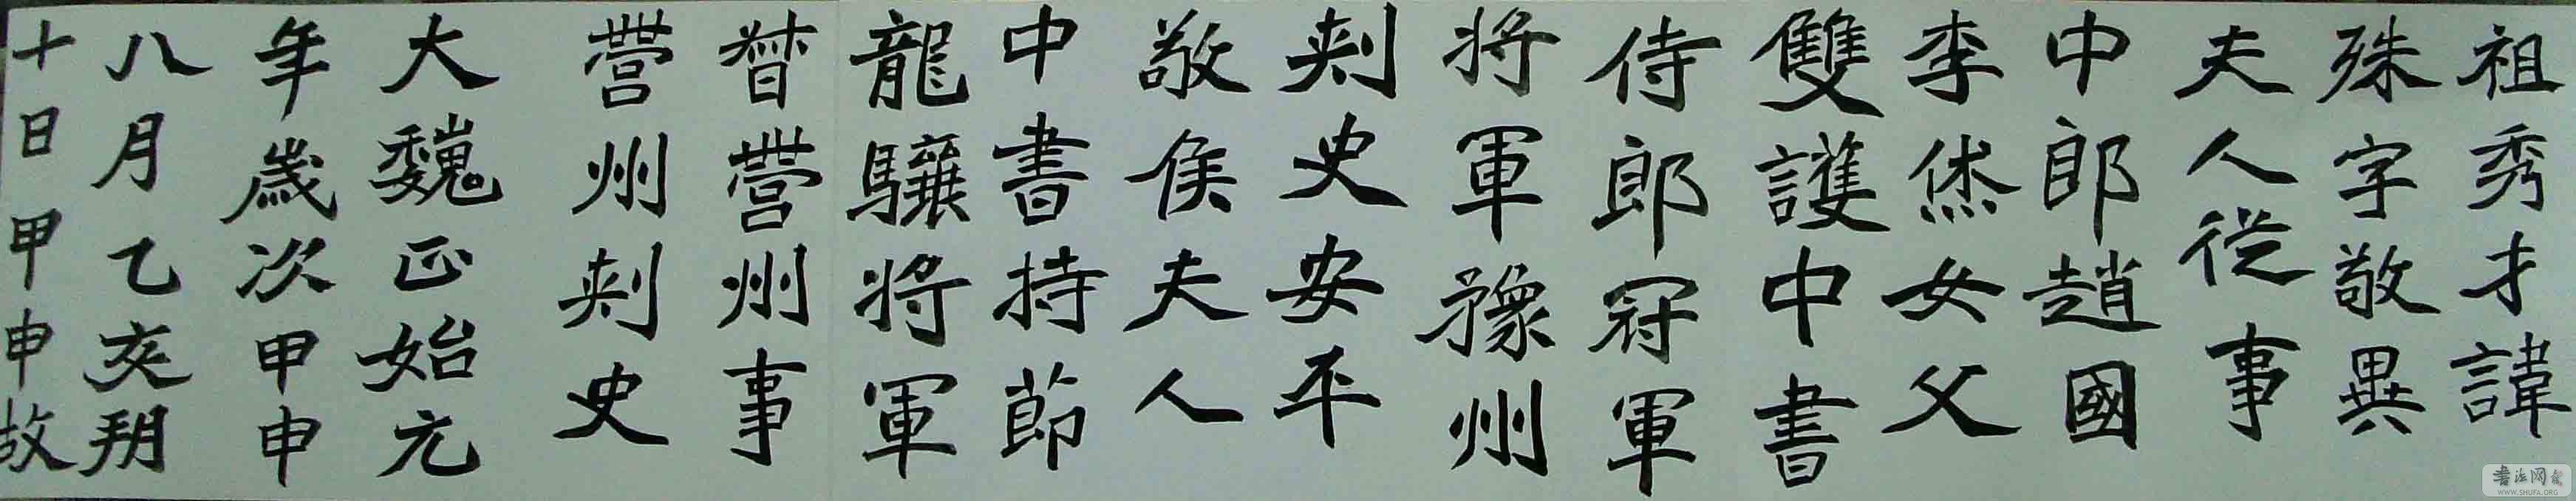 祖秀才諱
殊字敬異
夫人從事
中郎趙國
李烋女父
雙護中書
侍郎冠軍
將軍豫州
刺史安平
敬侯夫人
中書持節
龍驤將軍
督營州事
營州刺史
大魏正始元
年歲次甲申
八月乙亥朔
十日甲申故
书法网
WWW.SHUFA.ORG